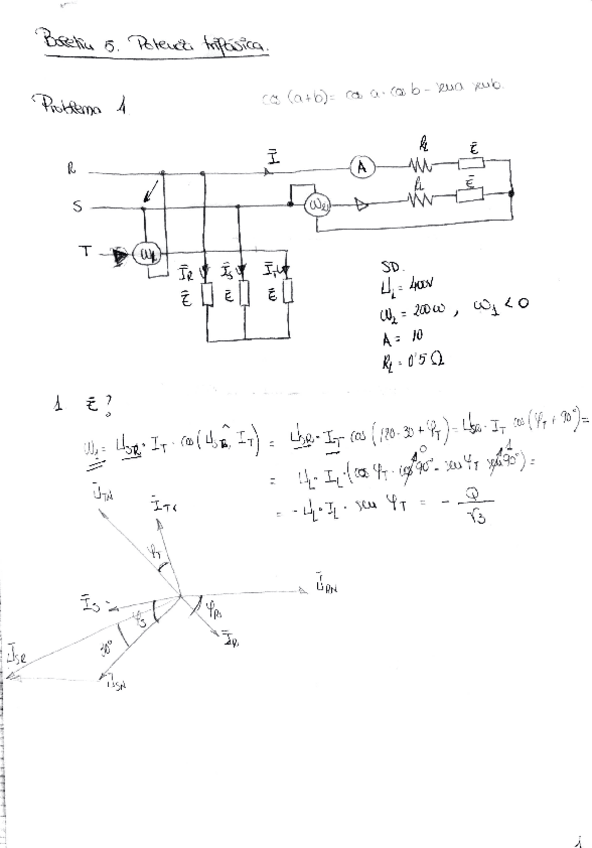 Boletín 5. Potencia trifásica.
Problema 1
cos (a+b) = cos a · cos b - sen a sen b
R
Ī
A
RL
Z̄
S
W2
RL
Z̄
T
W1
ĪR
ĪS
ĪT
Z̄
Z̄
Z̄
SD.
UL = 400V
W2 = 200W , W1 < 0
A = 10
RL = 0'5 Ω
1 Z̄ ?
W1 = USR · IT · cos (USR, IT) = USR · IT cos (120 - 30 + φT) = USR · IT cos (φT + 90°) =
= UL · IL · (cos φT · cos 90° - sen φT sen 90°) =
= - UL · IL · sen φT = - Q / √3
ŪTN
ĪT
φT
ŪRN
ĪS
φS
φR
30°
ĪR
ŪSR
ŪSN
1